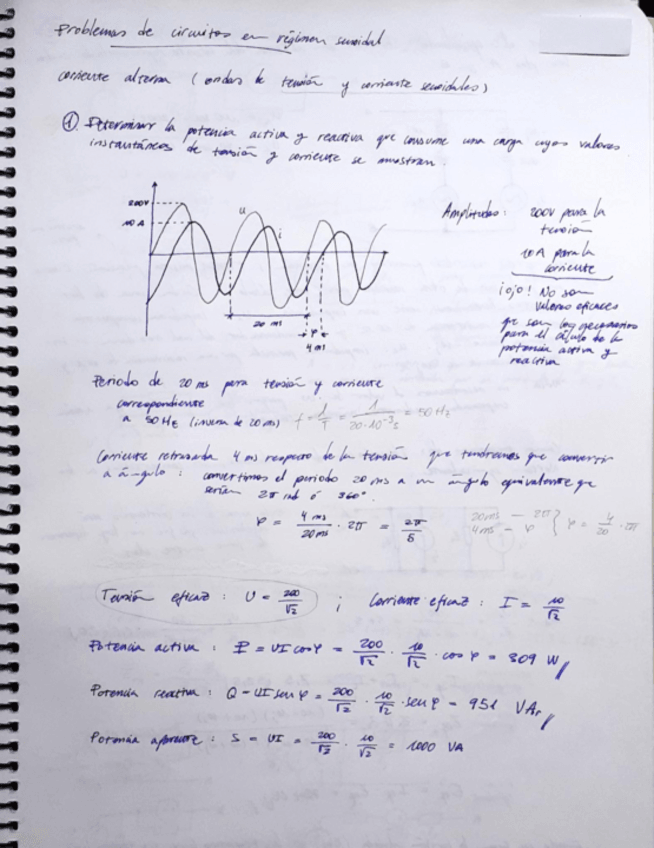 Problemas de circuitos en régimen senoidal
corriente alterna (ondas de tensión y corriente senoidales)
① Determinar la potencia activa y reactiva que consume una carga cuyos valores
instantáneos de tensión y corriente se muestran.
200V
10 A
u
i
20 ms
φ
4 ms
Amplitudes: 200V para la
tensión
10 A para la
corriente
¡ojo! No son
valores eficaces
que son los necesarios
para el cálculo de la
potencia activa y
reactiva
Periodo de 20 ms para tensión y corriente
correspondiente
a 50 Hz (inversa de 20 ms) f = 1/T = 1/20·10⁻³s = 50 Hz
Corriente retrasada 4 ms respecto de la tensión que tendremos que convertir
a ángulo: convertimos el periodo 20 ms a un ángulo equivalente que
serían 2π rad ó 360°.
φ = 4 ms/20 ms · 2π = 2π/5
20ms — 2π
4ms — φ } φ = 4/20 · 2π
Tensión eficaz: U = 200/√2 ; Corriente eficaz: I = 10/√2
Potencia activa: P = UI cos φ = 200/√2 · 10/√2 · cos φ = 309 W
Potencia reactiva: Q = UI sen φ = 200/√2 · 10/√2 · sen φ = 951 VAr
Potencia aparente: S = UI = 200/√2 · 10/√2 = 1000 VA